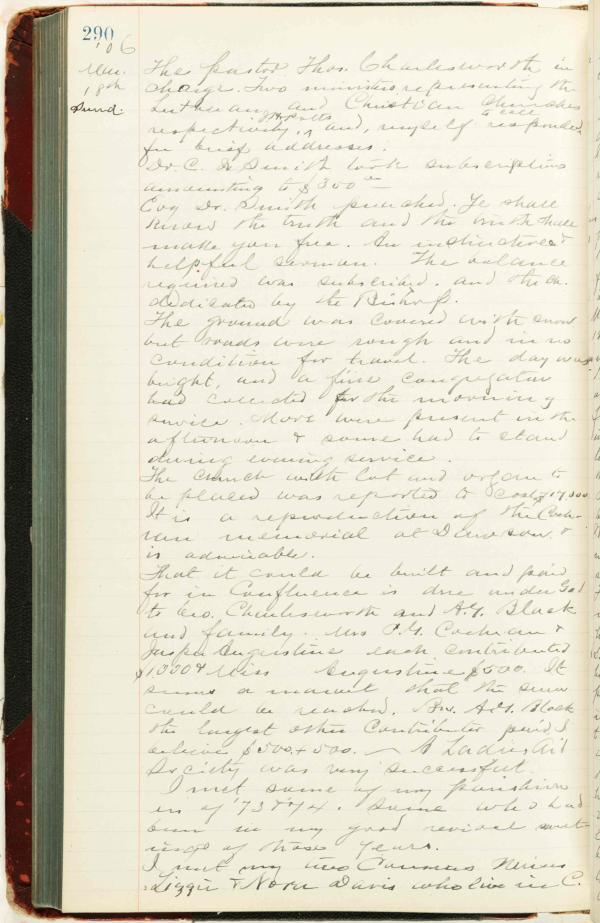 290
'06
Mar.
18th
Sund.
The pastor Thos. Charlesworth in
charge. Two ministers representing the
Lutheran and Christian Churches
respectively, and, myself responded
to call
for brief addresses.
Dr. C. W. Smith took subscriptions
amounting to $300
Eve Dr. Smith preached. Ye shall
know the truth and the truth shall
make you free. An instructive &
helpful sermon. The balance
required was subscribed. and the ch.
dedicated by the Bishop.
The ground was covered with snow
but roads were rough and in no
condition for travel. The day was
bright, and a fine congregation
had collected for the morning
service. More were present in the
afternoon & some had to stand
during evening service.
The church with lot and organ to
be placed was reported to cost $17,000
It is a reproduction of the Coch-
ran memorial at Dawson &
is admirable.
That it could be built and paid
for in Confluence is due under God
to Geo. Charlesworth and A. G. Black
and family. Mrs P. G. Cochran &
Jasper Augustine each contributed
$1300 & Miss Augustine $500. It
seems a marvel that the sum
could be reached. Bro. A. G. Black
the largest other Contributor paid I
believe $500 + 500. A Ladies Aid
Society was very successful.
I met some of my parishion
ers of '73 & '74. Some who had
been in my good revival meet-
ings of those years.
I met my two Cousins
Lizzie & Nora Davis who live in C.